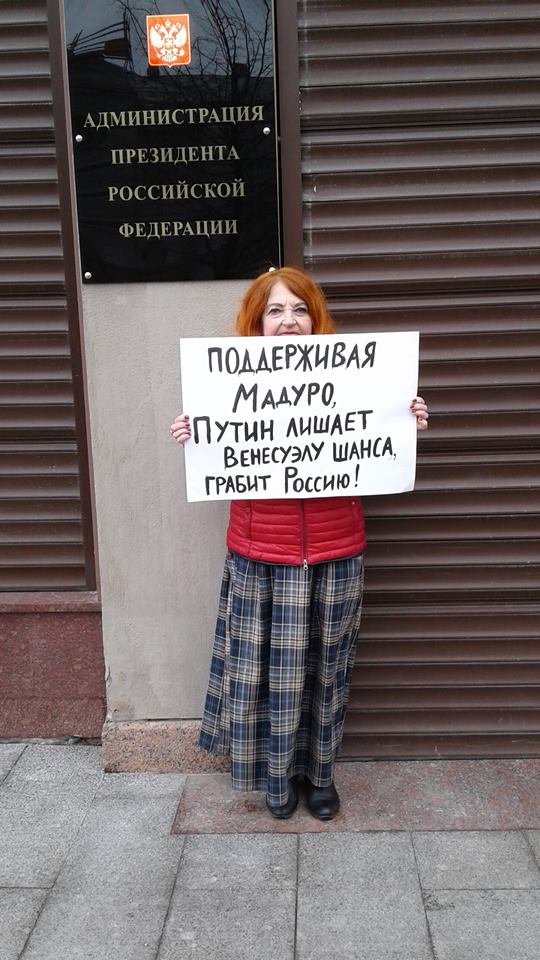 АДМИНИСТРАЦИЯ
ПРЕЗИДЕНТА
РОССИЙСКОЙ
ФЕДЕРАЦИИ
ПОДДЕРЖИВАЯ
МАДУРО,
ПУТИН ЛИШАЕТ
ВЕНЕСУЭЛУ ШАНСА,
ГРАБИТ РОССИЮ!